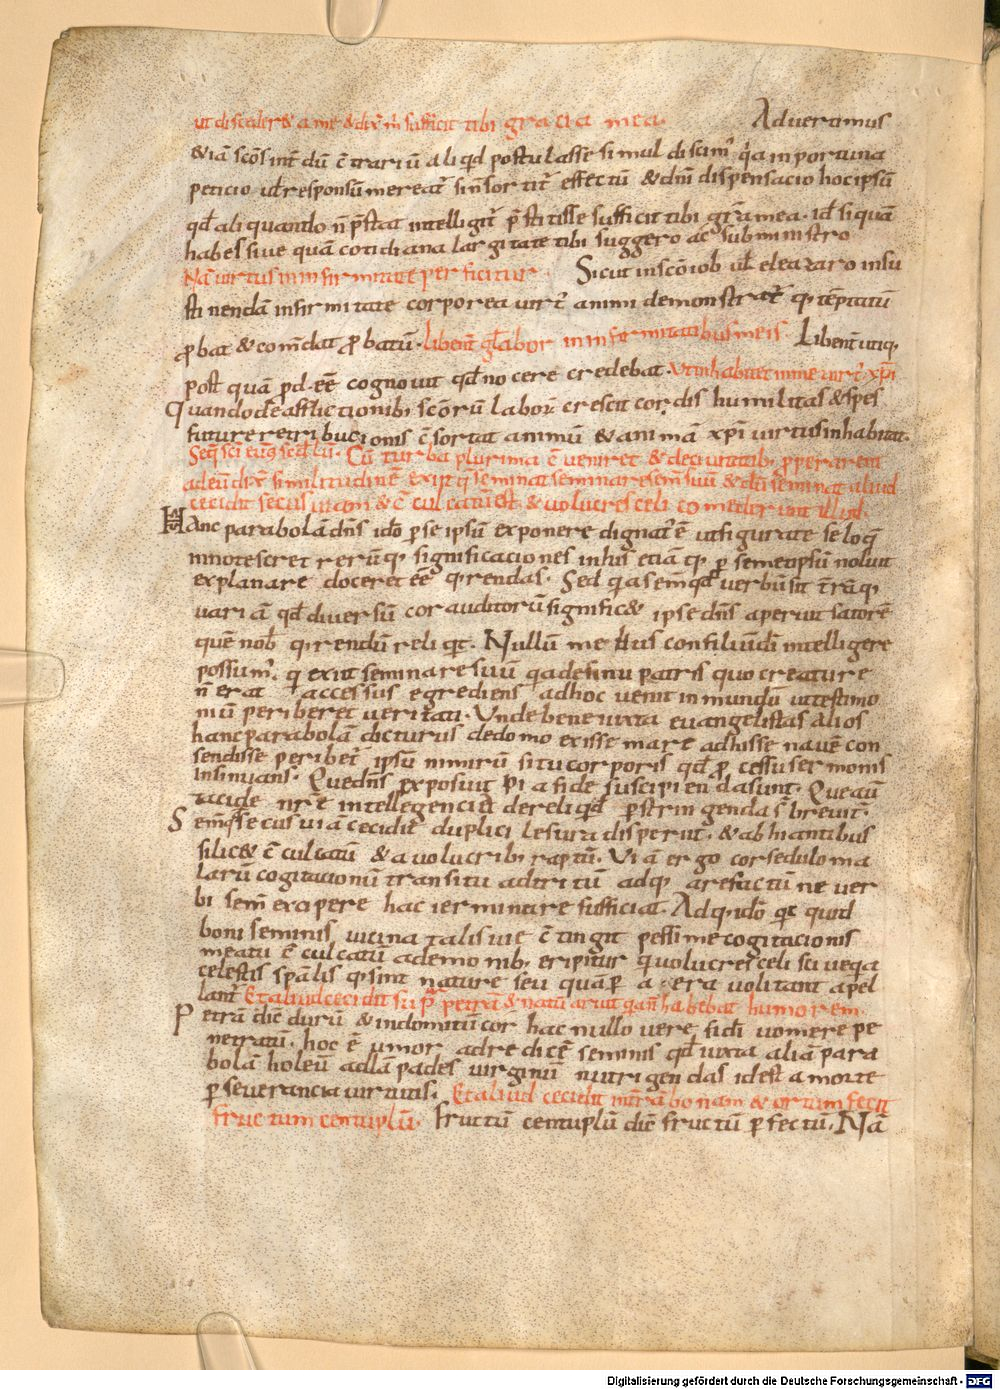 ut discederet a me & dix̄ m̄ sufficit tibi gracia mea Advertimus
&iā scōs int̄dū c̄trariū aliqd postulasse simul discim̄ q̄a inportuna
peticio ul̄ responsūmereat̄ sin̄sortit̄ effectū &dnī dispensacio hocipsū
qd̄ aliquando n̄ p̄stat intelligit̄ p̄stitisse sufficit tibi gr̄a mea. id̄ siquā
habes sive quā cotidiana largitate tibi suggero ac subministro
Nā virtus in infirmitate perficitur. Sicut inscōiob ul̄ eleazaro insu
stinendā infirmitate corporea virt̄ animi demonstrat̄ q̄ tēptatū
p̄bat &com̄dat p̄batū. libent̄ gl̄abor in infirmitatibus meis. Libent̄ utiq
post quā pd. eē cognovit qd̄ nocere credebat. Ut inhabitet inme virt̄ xp̄i
Quando de afflictionibꝰ scōrū labor̄ crescit cordis humilitas &spes
future retribucionis c̄fortat animū &animā xp̄i virtus inhabitat.
Seq̄ sci euḡ scd̄ lū. Cū turba plurima c̄veniret & deciuitatibꝰ p̄perarent
adeū dix̄ similitudinē exiit q̄ seminat seminare semē suū & dū seminat aliud
cecidit secus uiam & c̄culcatū est & uolucres celi comederunt illud.
Hanc parabolā dn̄s ido p̄se ipsū exponere dignat̄ ē ut figurate se loq̄
innotesceret rerūq significaciones inhis etiā q̄ p̄ semetipsū noluit
explanare doceret eē q̄rendas. Sed q̄a semq̄d verbūsit t̄rāq
variā qd̄ diversū cor auditorū signific& ipse dn̄s aperuit satorē
quē nob̄ q̄rendū reliqt̄. Nullū melius confiliūdī intelligere
possum̄. q̄ exiit seminare suū q̄a desinu patris quo creature
n̄ erat accessus egrediens adhoc venit in mundū ut testimo
niū periberet veritati. Unde bene iuxta euangelistas alios
hanc parabolā dicturus dedomo exisse mare adhisse navē con
sendisse peribet̄ ipsū nimirū situ corporis qd̄ p̄cessu sermonis
insinuans. Quedn̄s exposuit pia fide suscipiendasunt. Queaū
tacide nr̄e intellegencie dereliqd p̄stringendas breuit̄.
Semq̄ secus uiā cecidit duplici lesura disperiit. &ab hiantibus
silic& c̄culcatū &a volucribꝰ raptū. Viā ergo cor sedulo ma
larū cogitacionū transitu adtritū adq arefactū ne ver
bi sem̄ excipere hac ierminare sufficiat. Adq̄ ido q̄c quid
boni seminis vicina talis vie c̄tingit pessime cogitacionis
meatu c̄culcatū ademonibꝰ eripitur q̄ volucres celi sci veq̄a
celestis sp̄alis q̄ sint nature seu quā p̄ aera volitant apel
lant̄ Et aliud cecidit sup̄ petrā & natū aruit q̄a n̄ habebat humorem
Petrā dic̄ durū &indomitū cor hac nullo vere fidī vomere pe
netratū. hoc ē umor adredicē seminis qd̄ iuxta aliā para
bolā holeū adlāpades virginū nutrigendas idest amorte
p̄severancia virtutis. Et aliud cecidit int̄rā bonam & ortum fecit
fructum centuplū. Fructū centuplū dic̄ fructū p̄fectū. Nā
Digitalisierung gefördert durch die Deutsche Forschungsgemeinschaft - DFG